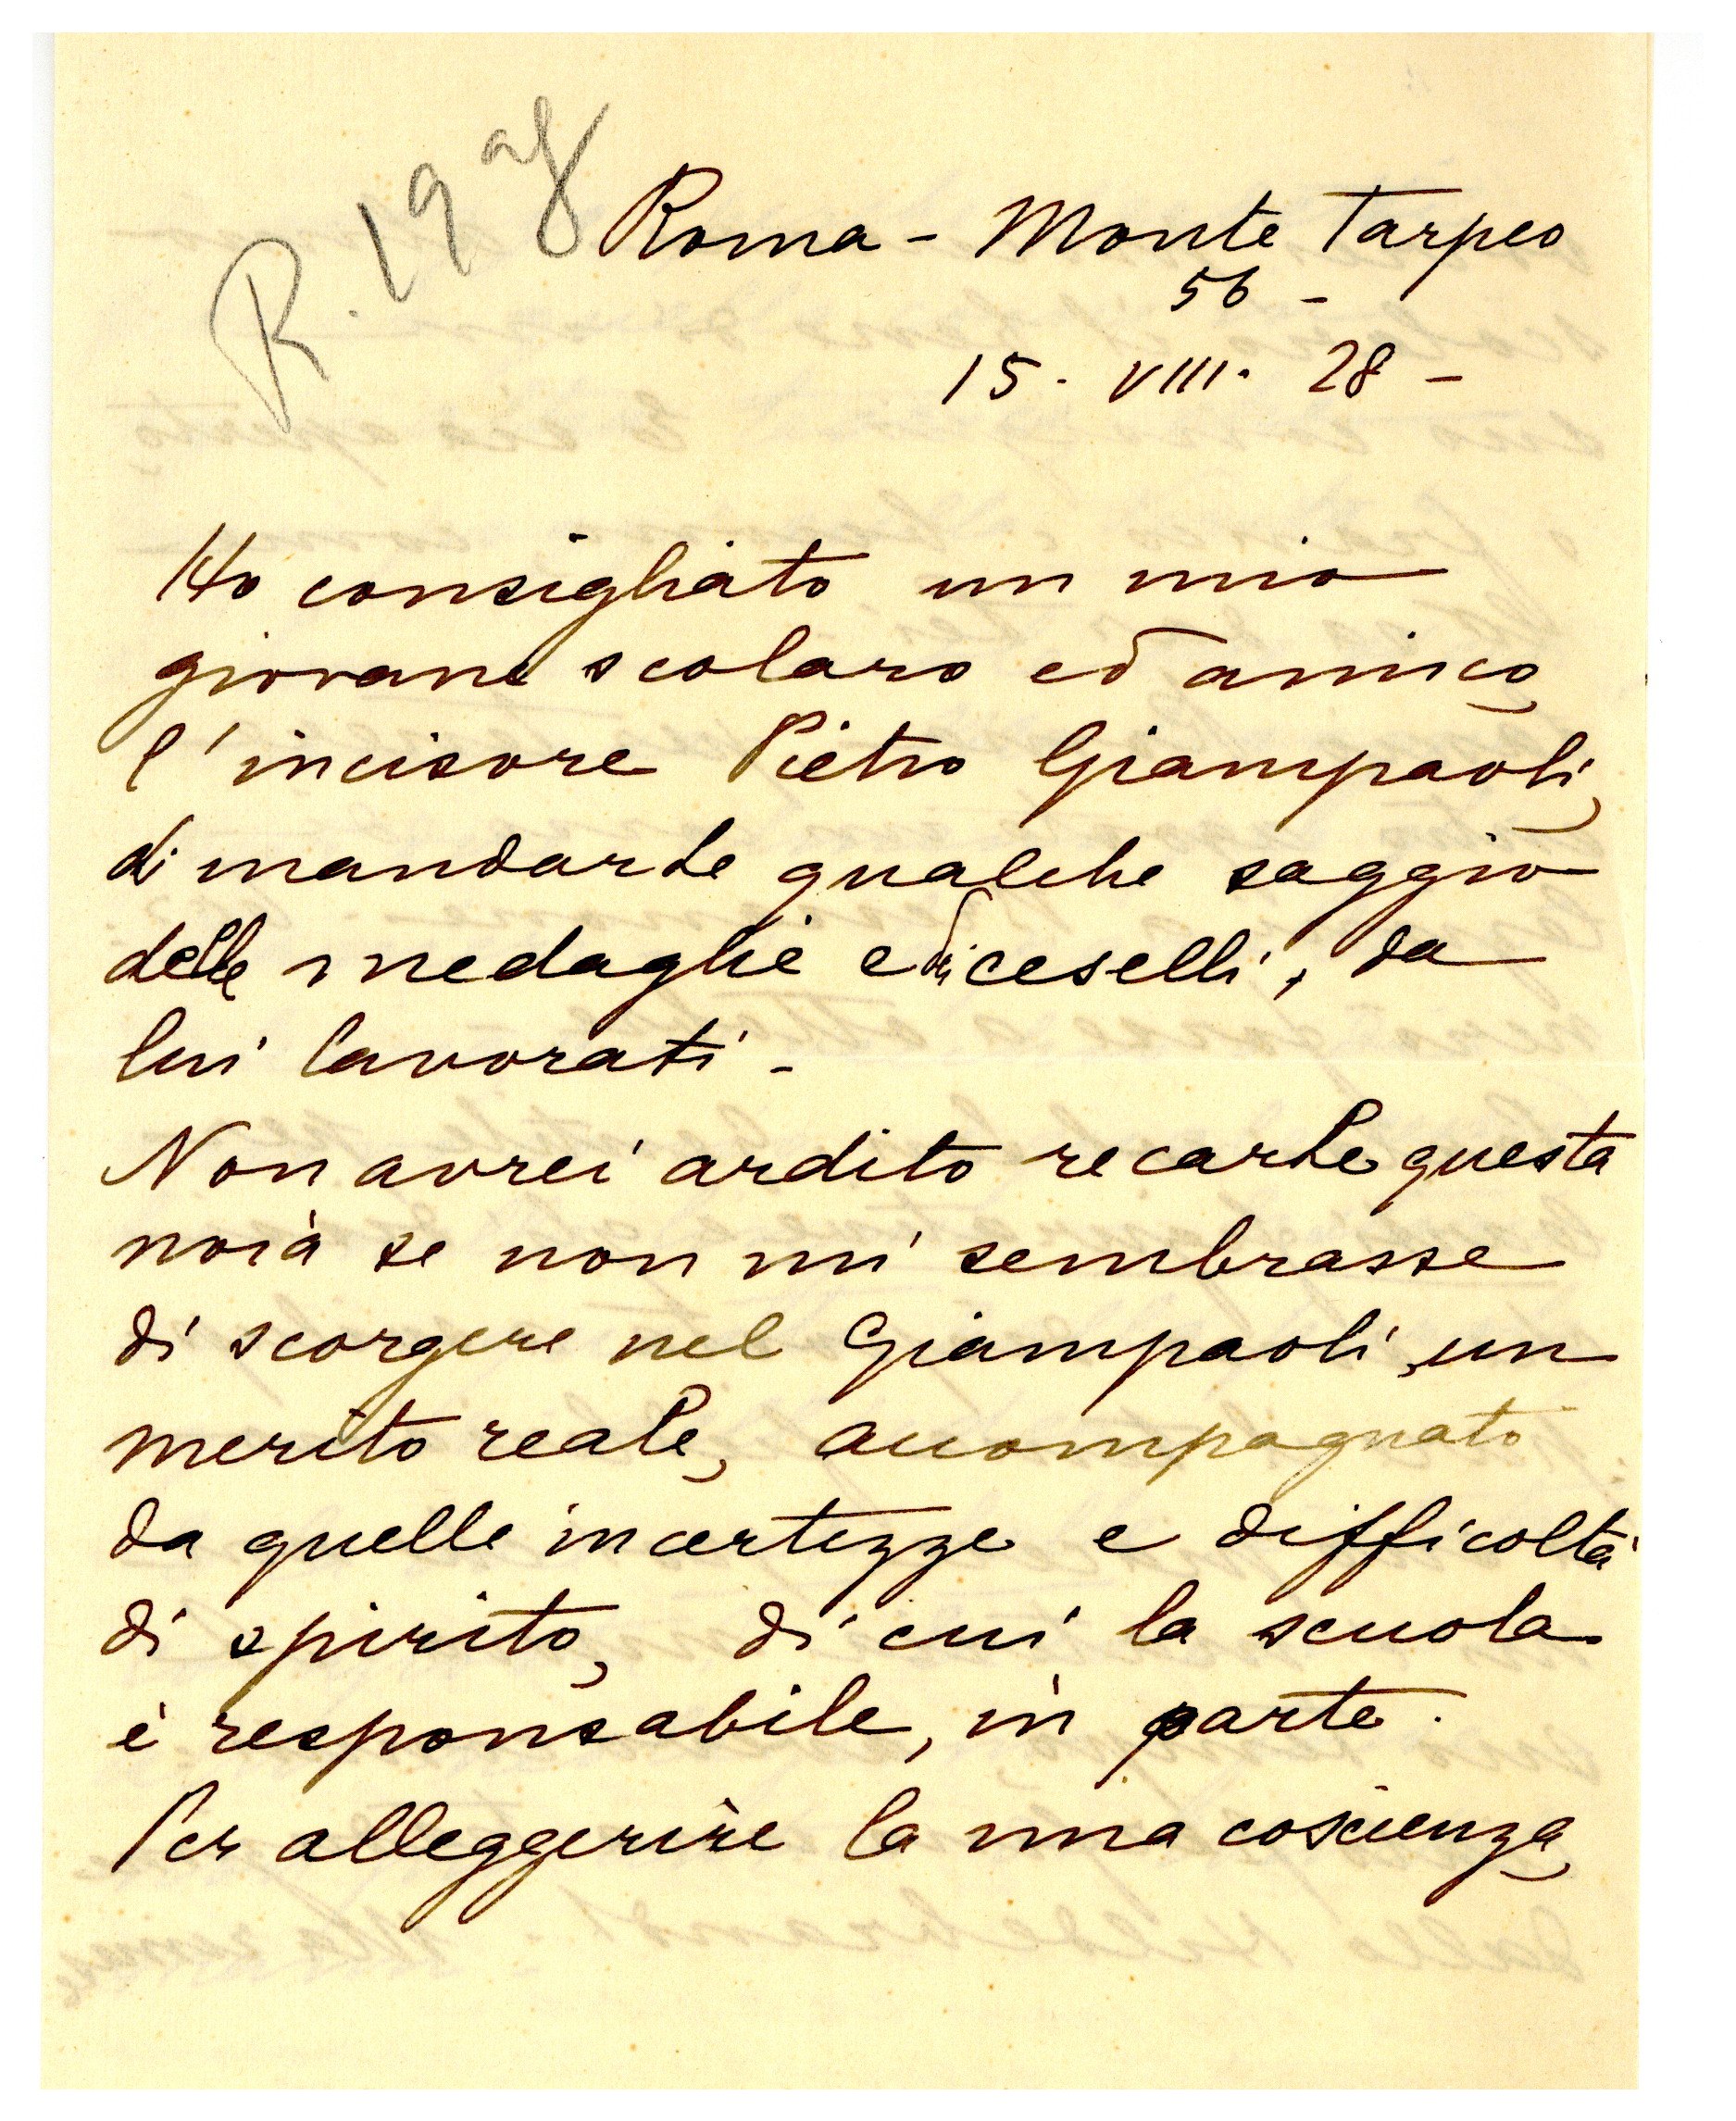 R. 19 ag
Roma - Monte Tarpeo
56 -
15. VIII. 28 -
Ho consigliato un mio
giovane scolaro ed amico,
l'incisore Pietro Giampaoli,
di mandarLe qualche saggio
delle medaglie e di ceselli, da
lui lavorati -
Non avrei ardito recarLe questa
noia se non mi sembrasse
di scorgere nel Giampaoli, un
merito reale, accompagnato
da quelle incertezze e difficoltà
di spirito, di cui la scuola
è responsabile, in parte.
Per alleggerire la mia coscienza,